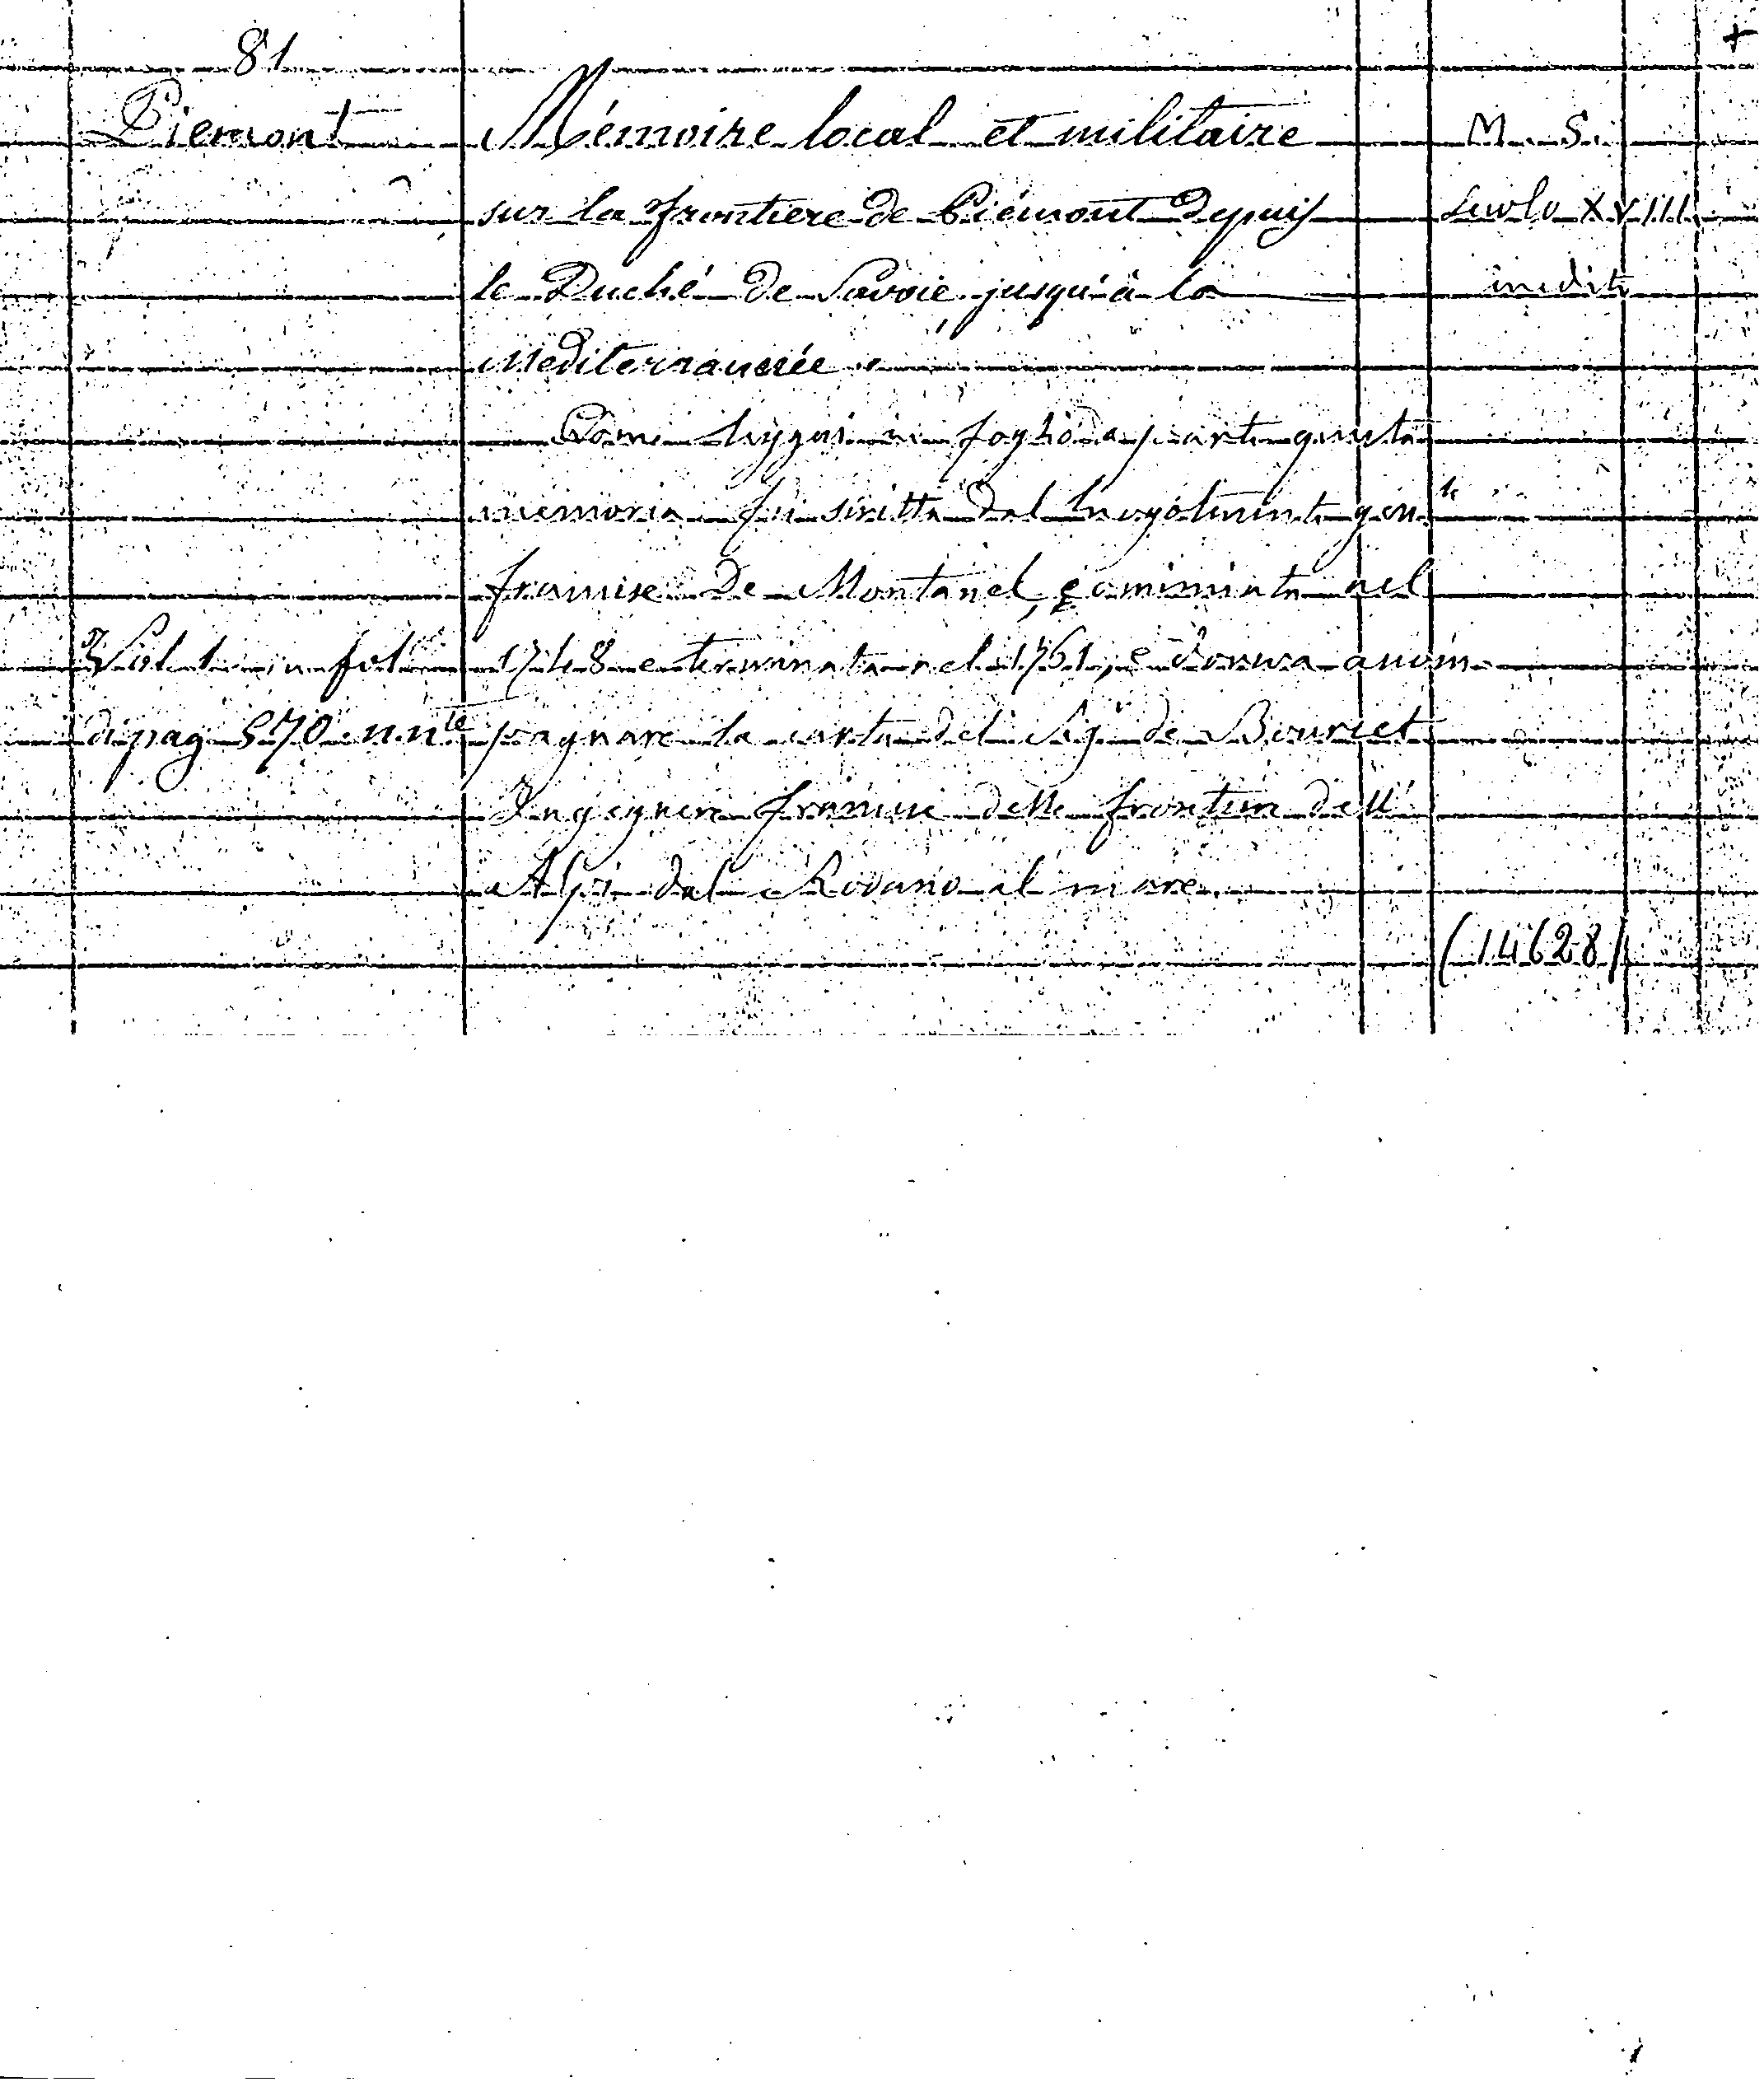 81
+
Piemont
Mémoire local et militaire
M. S.
sur la Frontiere de Piémont Depuis
Secolo XVIII
le Duché de Savoie jusqu'à la
inedito
Mediterrannée
Come leggesi in foglio a parte questa
memoria fu scritta dal luogotenente gen.le
francese De Montanel, cominciata nel
Vol. 1 in fol
1748 e terminata nel 1761, e doveva accom
di pag 570 n.nte
pagnare la carta del Sig. de Bourcet
Ingegnere francese delle frontiere dell'
Alpi dal Rodano al mare.
(14628)